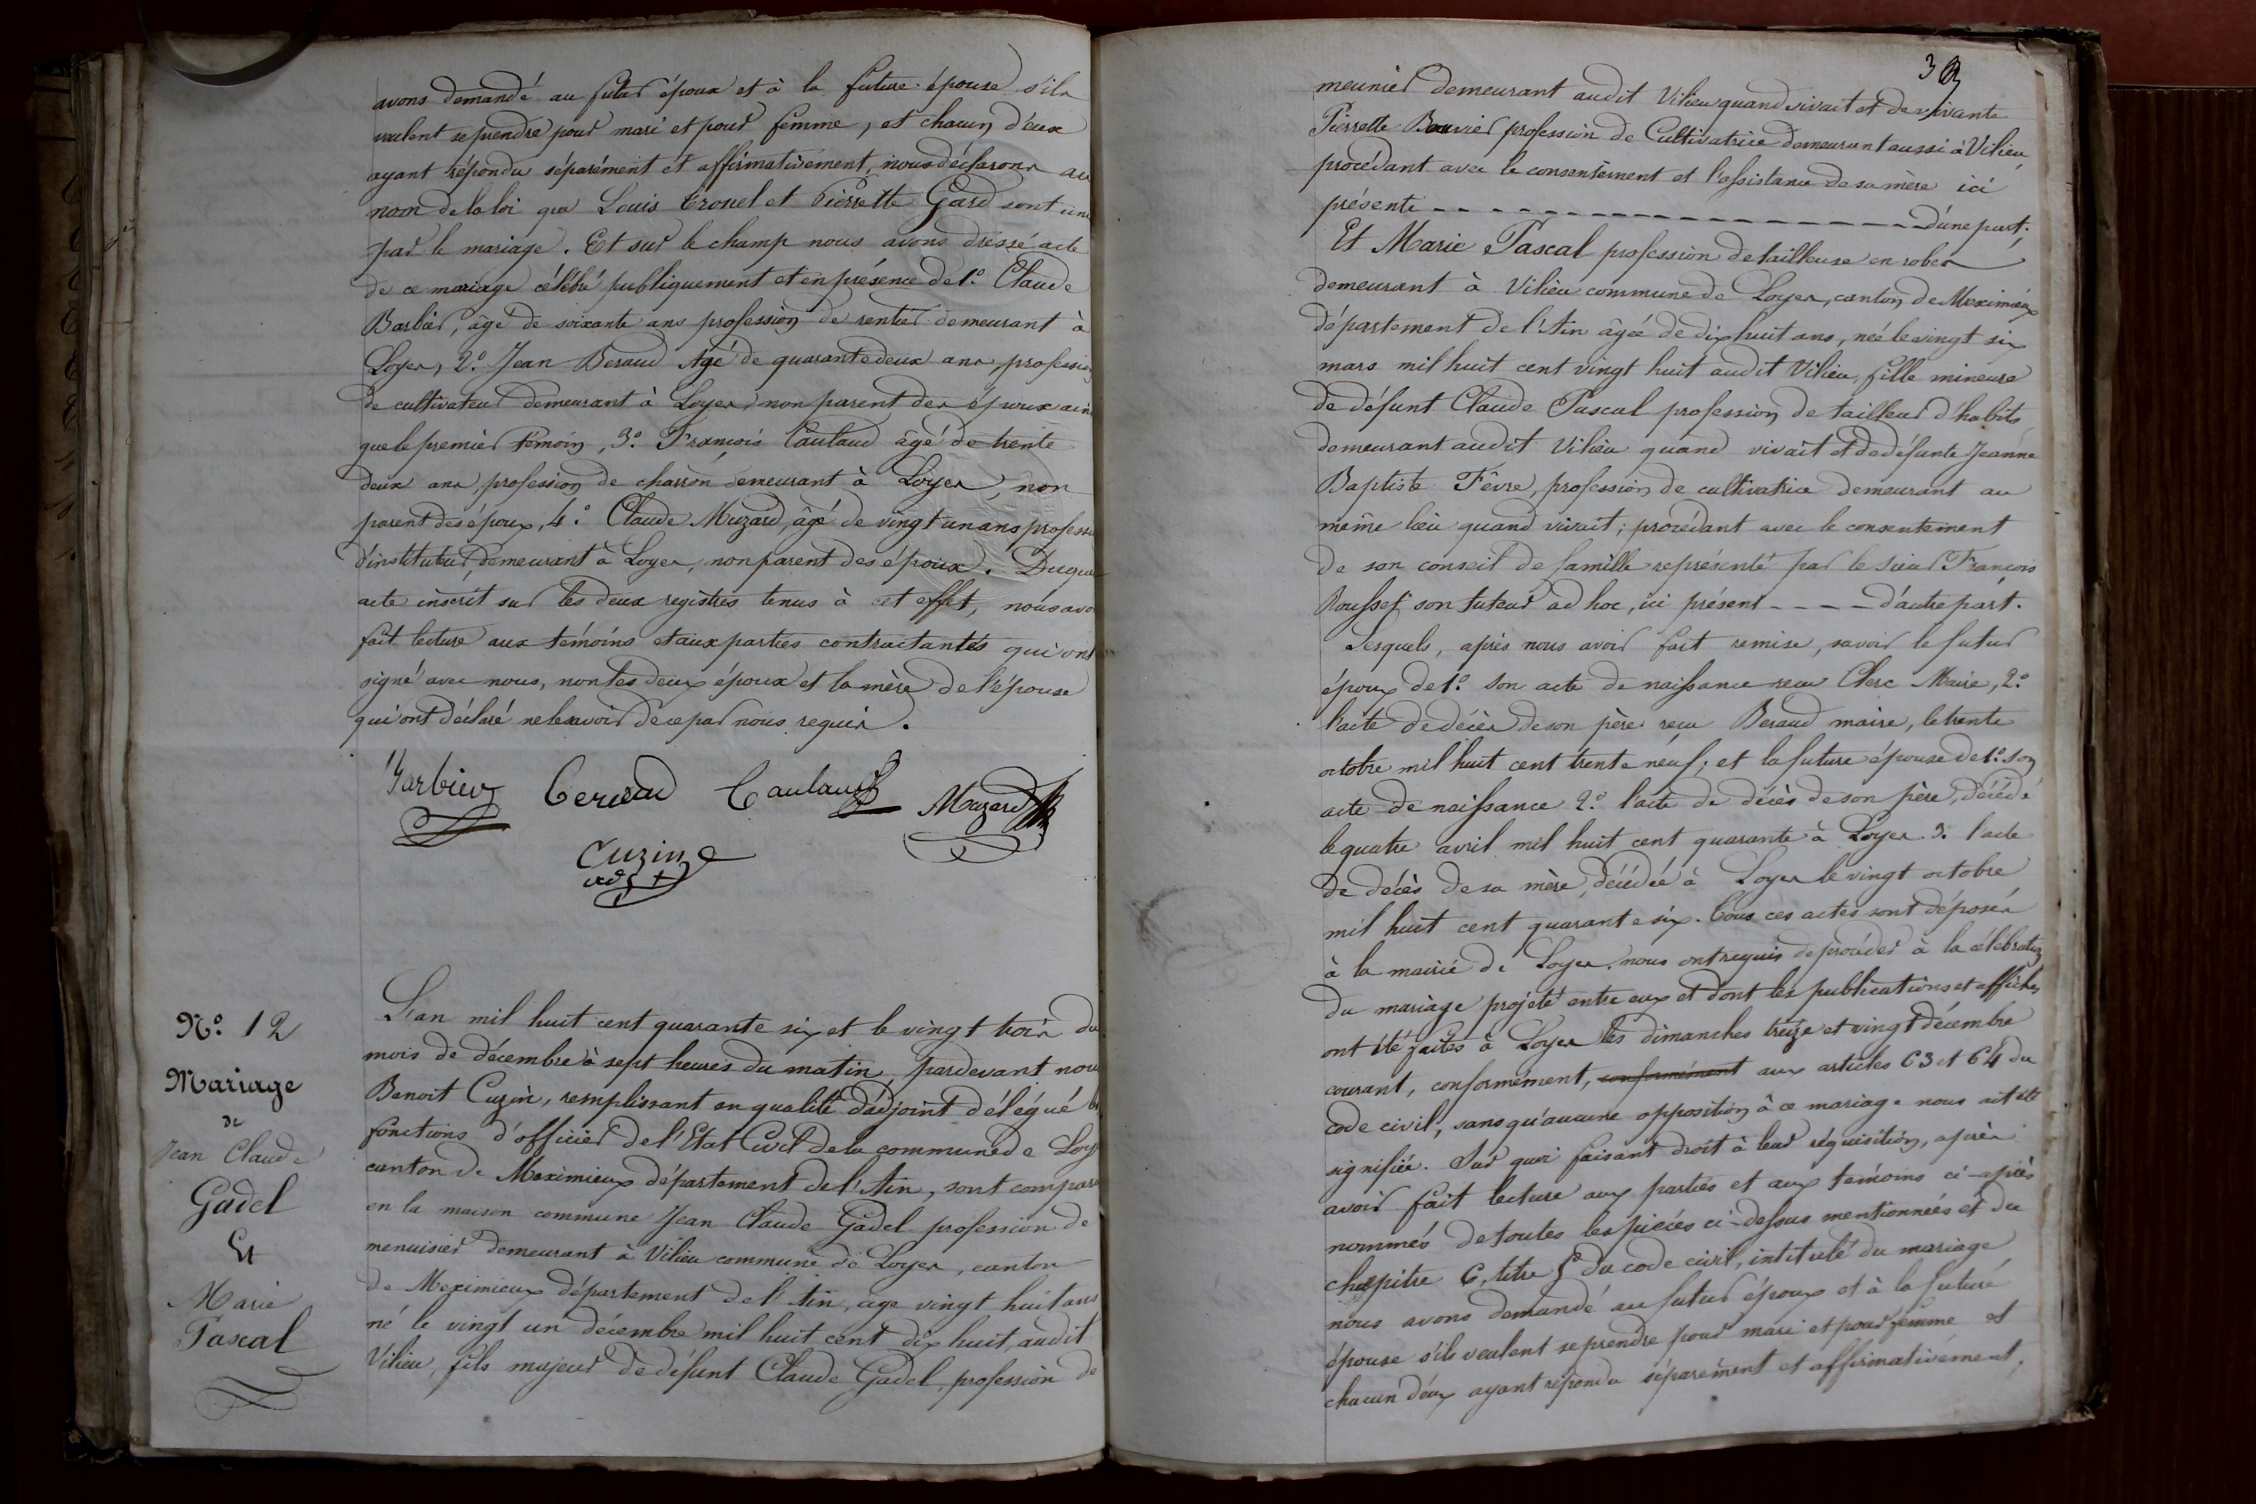 avons demandé au futur époux et à la future épouse s'ils
veulent se prendre pour mari et pour femme, et chacun d'eux
ayant répondu séparément et affirmativement, nous déclarons au
nom de la loi que Louis Tronel et Pierrette Gard sont unis
par le mariage. Et sur le champ nous avons dressé acte
de ce mariage célébré publiquement et en présence de 1.° Claude
Barbier, âgé de soixante ans profession de rentier demeurant à
Loyes, 2.° Jean Beraud âgé de quarante deux ans, profession
de cultivateur demeurant à Loyes, non parent des époux ainsi
que le premier témoin, 3.° François Caulaud âgé de trente
deux ans, profession de charron demeurant à Loyes, non
parent des époux, 4.° Claude Muzard, âgé de vingt un ans profession
d'instituteur, demeurant à Loyes, non parent des époux. Duquel
acte inscrit sur les deux registres tenus à cet effet, nous avons
fait lecture aux témoins et aux parties contractantes qui ont
signé avec nous, non les deux époux et la mère de l'épouse
qui ont déclaré ne le savoir de ce par nous requis.
Barbier Beraud Caulaud Muzard
Cuzin
adj
N.° 12
Mariage
de
Jean Claude
Gadel
Et
Marie
Pascal
L'an mil huit cent quarante six et le vingt trois du
mois de décembre à sept heures du matin, pardevant nous
Benoit Cuzin, remplissant en qualité d'adjoint délégué les
fonctions d'officier de l'Etat Civil de la commune de Loyes
canton de Meximieux département de l'Ain, sont comparus
en la maison commune Jean Claude Gadel profession de
menuisier demeurant à Vilieu commune de Loyes, canton
de Meximieux département de l'Ain, âgé vingt huit ans
né le vingt un décembre mil huit cent dix huit, audit
Vilieu, fils majeur de défunt Claude Gadel, profession de
meunier demeurant audit Vilieu quand vivait et de vivante
Pierrette Bouvier profession de Cultivatrice demeurant aussi à Vilieu,
procédant avec le consentement et l'assistance de sa mère ici
présente - - - - - - - - - - - - - - - - - - d'une part.
Et Marie Pascal profession de tailleuse en robes
demeurant à Vilieu commune de Loyes, canton de Meximieux
département de l'Ain âgée de dix huit ans, née le vingt six
mars mil huit cent vingt huit audit Vilieu, fille mineure
de défunt Claude Pascal profession de tailleur d'habits
demeurant audit Vilieu quand vivait et de défunte Jeanne
Baptiste Fèvre, profession de cultivatrice demeurant au
même lieu quand vivait; procédant avec le consentement
de son conseil de famille représenté par le sieur François
Rousset son tuteur ad hoc, ici présent - - - - d'autre part.
Lesquels, après nous avoir fait remise, savoir le futur
époux de 1.° son acte de naissance reçu Clerc Maire, 2.°
l'acte de décès de son père reçu Beraud maire, le trente
octobre mil huit cent trente neuf; et la future épouse de 1.° son
acte de naissance 2.° l'acte de décès de son père, décédé
le quatre avril mil huit cent quarante à Loyes 3. l'acte
de décès de sa mère, décédée à Loyes le vingt octobre
mil huit cent quarante six. Tous ces actes sont déposés
à la mairie de Loyes. nous ont requis de procéder à la célébration
du mariage projeté entre eux et dont les publications et affiches
ont été faites à Loyes les dimanches treize et vingt décembre
courant, conformément, conformément aux articles 63 et 64 du
code civil, sans qu'aucune opposition à ce mariage nous ait été
signifiée. Sur quoi faisant droit à leur réquisition, après
avoir fait lecture aux parties et aux témoins ci-après
nommés de toutes les pièces ci-dessus mentionnées et du
chapitre 6, titre 5 du code civil, intitulé du mariage
nous avons demandé au futur époux et à la future
épouse s'ils veulent se prendre pour mari et pour femme et
chacun d'eux ayant répondu séparément et affirmativement,